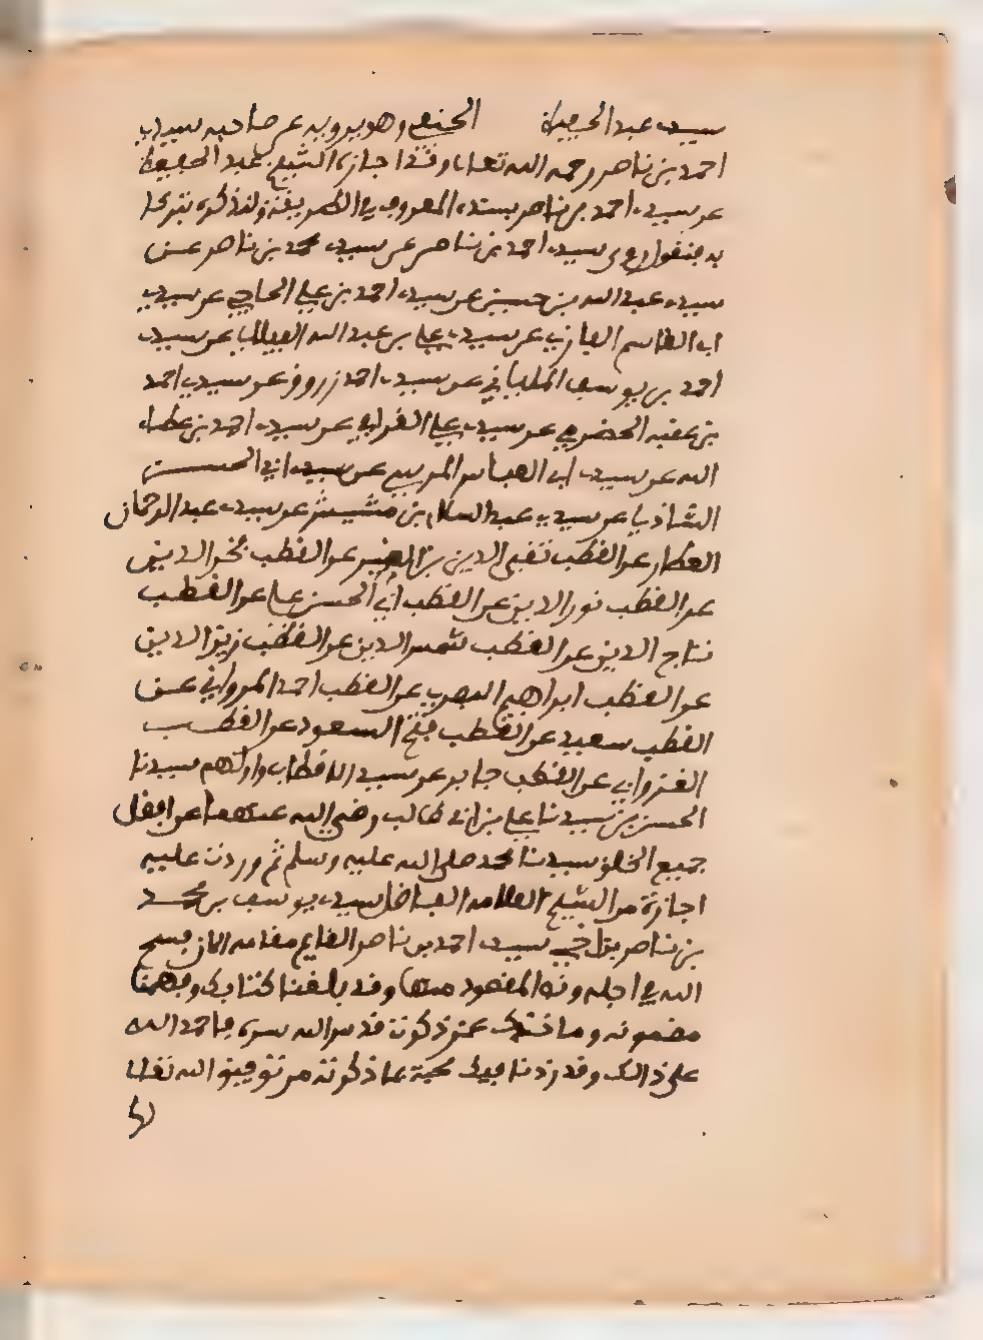 سيدي عبد الحفيظ الحنفي وهو يرويه عن صاحبه سيدي
احمد بن ناصر رحمه الله تعالى وقد اجازه الشيخ عبد الحفيظ
عن سيدي احمد بن ناصر بسنده المعروف في الطريقة ولنذكره تبركا
به فنقول روى سيدي احمد بن ناصر عن سيدي محمد بن ناصر عن
سيدي عبد الله بن حسين عن سيدي احمد بن علي الحاجي عن سيدي
ابي القاسم الغازي عن سيدي علي بن عبد الله الفيلالي عن سيدي
احمد بن يوسف الملياني عن سيدي احمد زروق عن سيدي احمد
بن عقبه الحضرمي عن سيدي علي القرافي عن سيدي احمد بن عطاء
الله عن سيدي ابي العباس المرسي عن سيدي ابي الحسن
الشاذلي عن سيدي عبد السلام بن مشيش عن سيدي عبد الرحمان
العطار عن القطب تقي الدين بن الفقير عن القطب فخر الدين
عن القطب نور الدين عن القطب ابي الحسن علي عن القطب
تاج الدين عن القطب شمس الدين عن القطب زين الدين
عن القطب ابراهيم البصري عن القطب احمد المرواني عن
القطب سعيد عن القطب فتح السعود عن القطب
الغزواني عن القطب جابر عن سيد الاقطاب واولهم سيدنا
الحسن بن سيدنا علي بن ابي طالب رضي الله عنهما عن افضل
جميع الخلق سيدنا محمد صلى الله عليه وسلم ثم وردت عليه
اجازة من الشيخ العلامه الفاضل سيدي يوسف بن محمد
بن ناصر بن اخي سيدي احمد بن ناصر القايم مقامه الان فسح
الله في اجله ونص المقصود منها وقد بلغنا كتابك وفهمنا
مضمونه وما عندك عمن ذكرته قدس الله سره فاحمد الله
على ذالك وقد زدنا فيك محبة بما ذكرته من توفيق الله تعالى